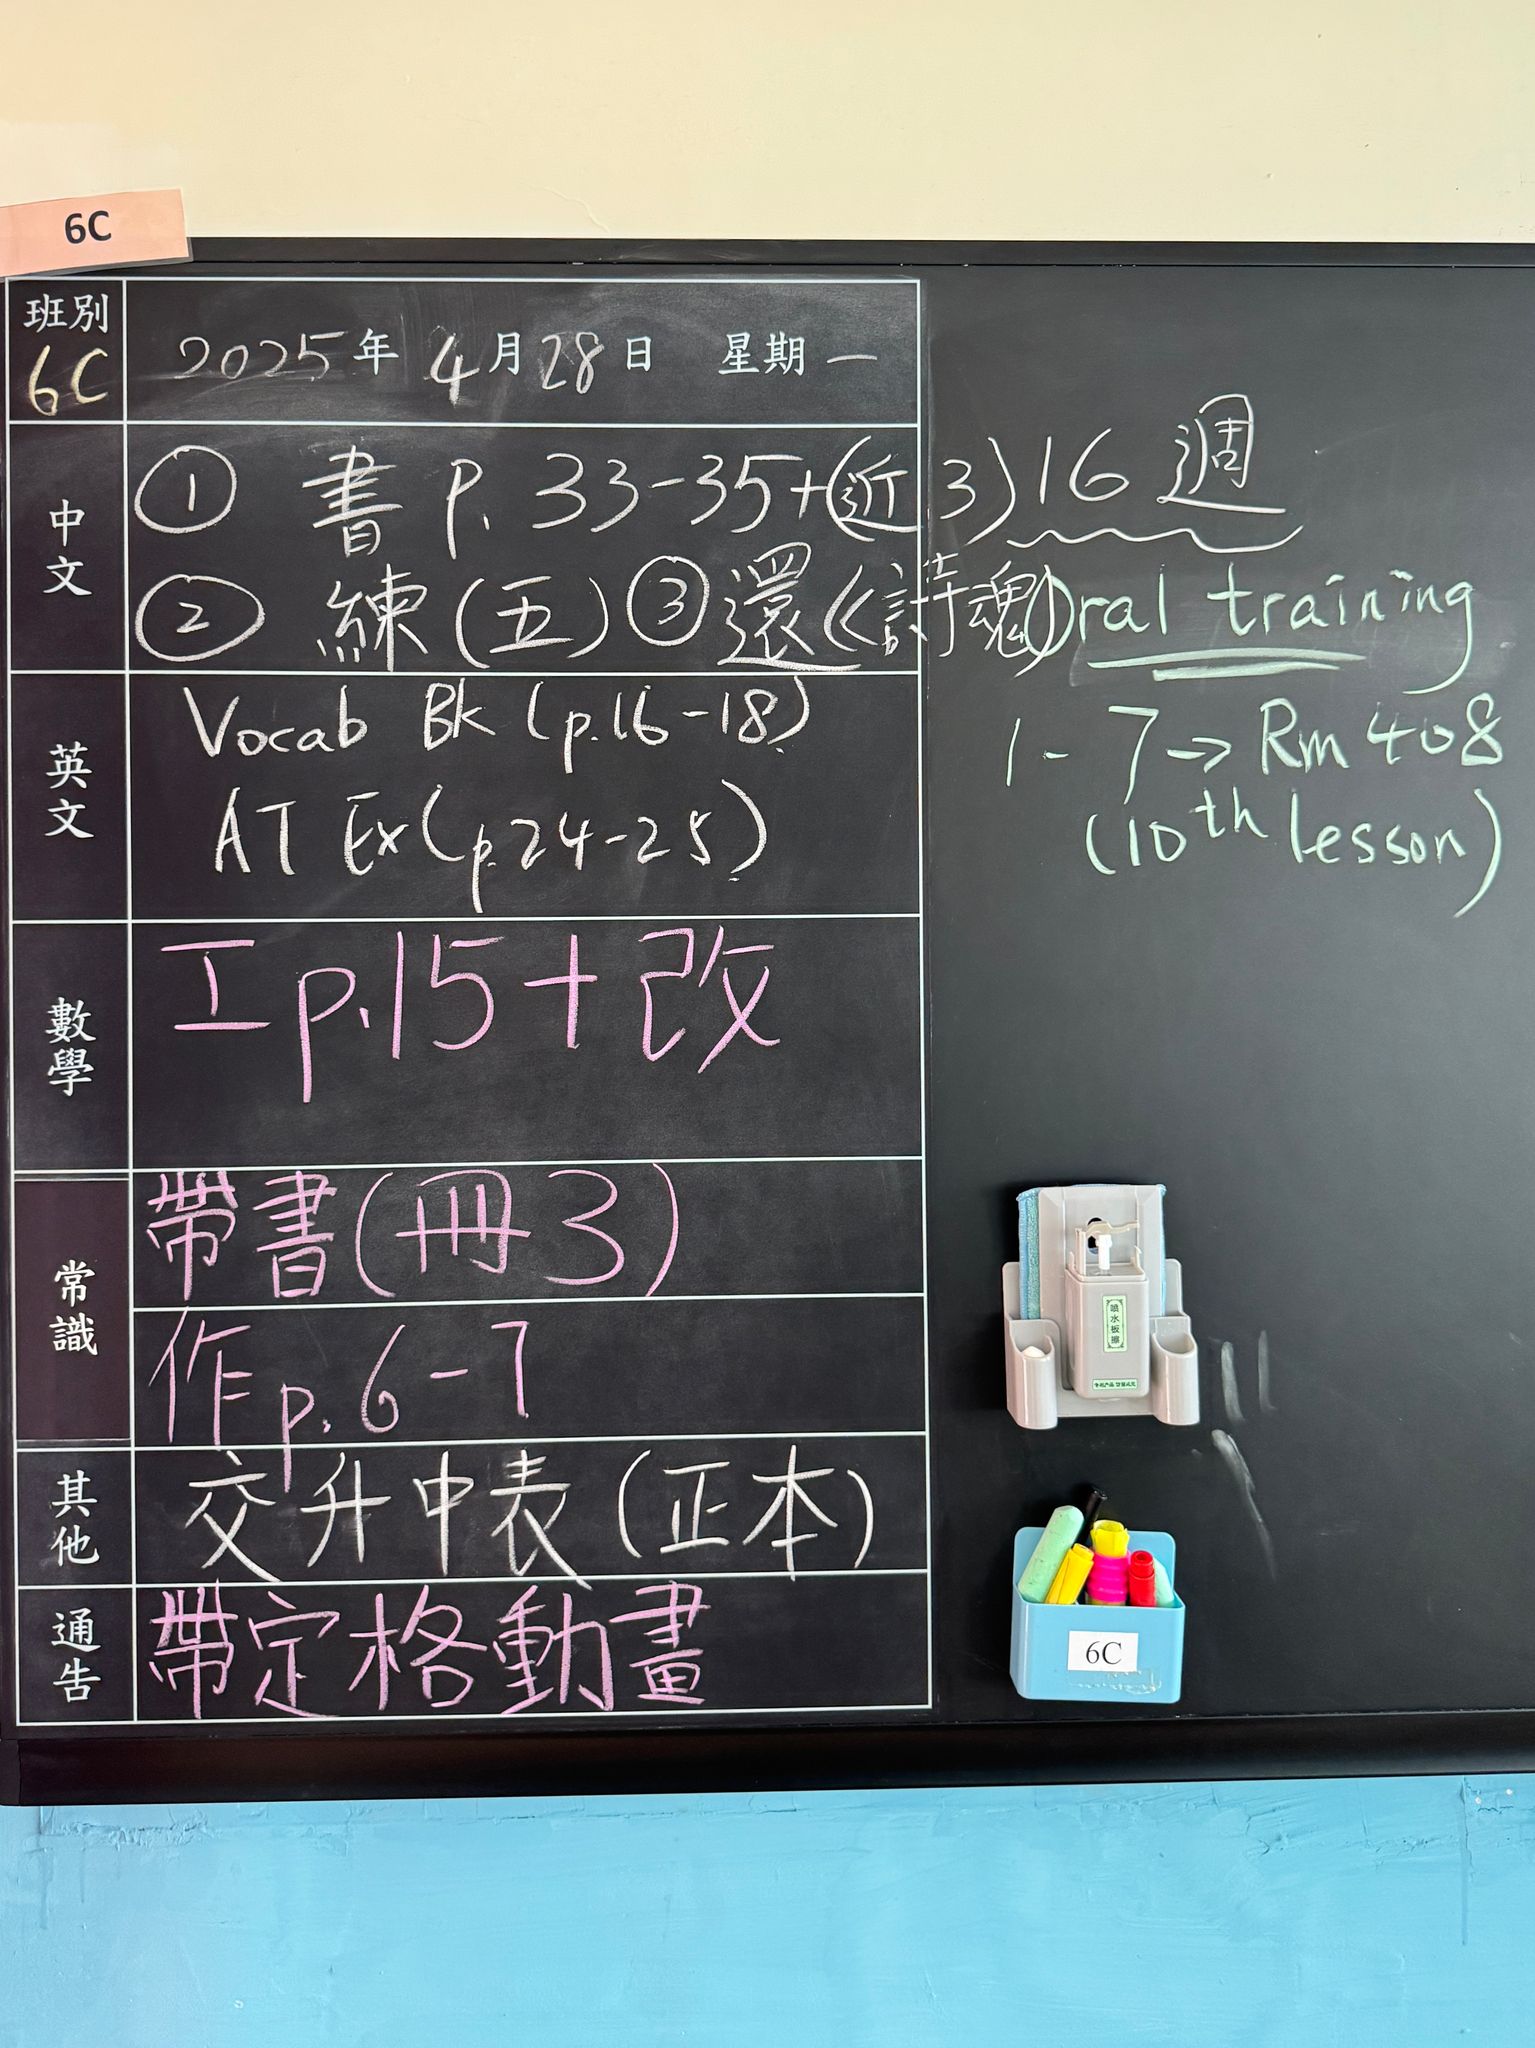 6C
班別
6C
2025年 4月28日 星期一
中文
① 書 p. 33-35+(近3)
② 練(五) ③還《詩魂》
英文
Vocab Bk (p.16-18)
AT Ex (p.24-25)
數學
工p.15+改
常識
帶書(冊3)
作p.6-7
其他
交升中表(正本)
通告
帶定格動畫
16週
Oral training
1-7→Rm 408
(10th lesson)
噴水板擦
6C